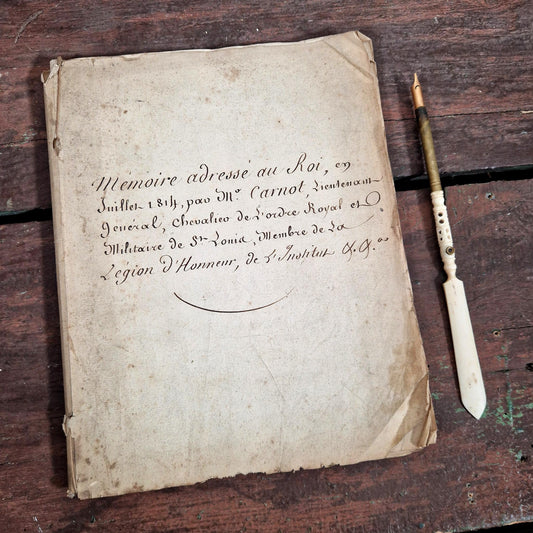 Memoire adressé au Roi, en
Juillet 1814, par Mr. Carnot, Lieutenant
général, Chevalier de L'ordre Royal et
Militaire de St. Louis, Membre de La
Légion d'Honneur, de L'Institut &. &.